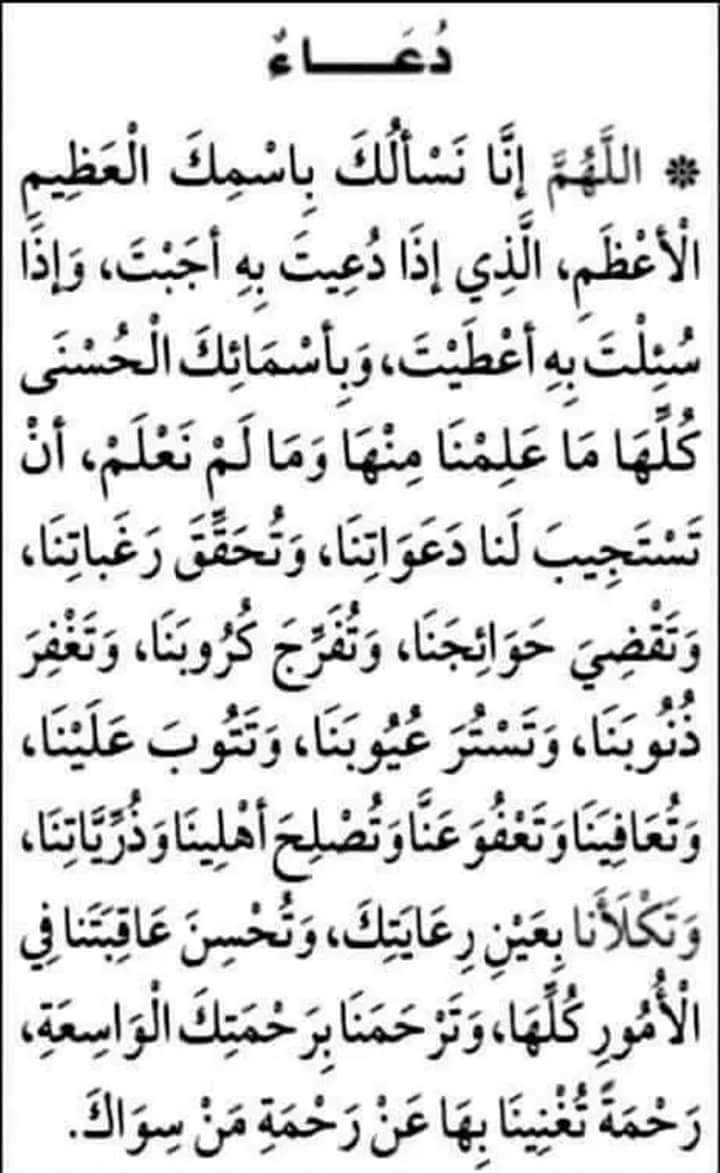 دُعَـــاءٌ
❊ اللَّهُمَّ إِنَّا نَسْأَلُكَ بِاسْمِكَ الْعَظِيمِ
الْأَعْظَمِ، الَّذِي إِذَا دُعِيتَ بِهِ أَجَبْتَ، وَإِذَا
سُئِلْتَ بِهِ أَعْطَيْتَ، وَبِأَسْمَائِكَ الْحُسْنَى
كُلِّهَا مَا عَلِمْنَا مِنْهَا وَمَا لَمْ نَعْلَمْ، أَنْ
تَسْتَجِيبَ لَنا دَعَوَاتِنَا، وَتُحَقِّقَ رَغَباتِنَا،
وَتَقْضِيَ حَوَائِجَنَا، وَتُفَرِّجَ كُرُوبَنَا، وَتَغْفِرَ
ذُنُوبَنَا، وَتَسْتُرَ عُيُوبَنَا، وَتَتُوبَ عَلَيْنَا،
وَتُعَافِيَنَا وَتَعْفُوَ عَنَّا وَتُصْلِحَ أَهْلِينَا وَذُرِّيَّاتِنَا،
وَتَكْلَأَنا بِعَيْنِ رِعَايَتِكَ، وَتُحْسِنَ عَاقِبَتَنا فِي
الْأُمُورِ كُلِّهَا، وَتَرْحَمَنَا بِرَحْمَتِكَ الْوَاسِعَةِ،
رَحْمَةً تُغْنِينَا بِهَا عَنْ رَحْمَةِ مَنْ سِوَاكَ.